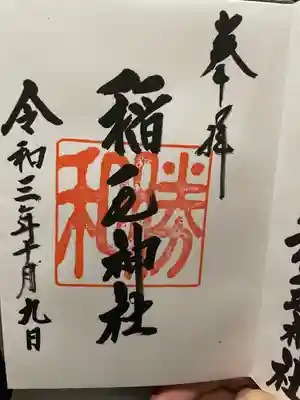 奉拝
稲毛神社
勝
和
令和三年十月九日
神社